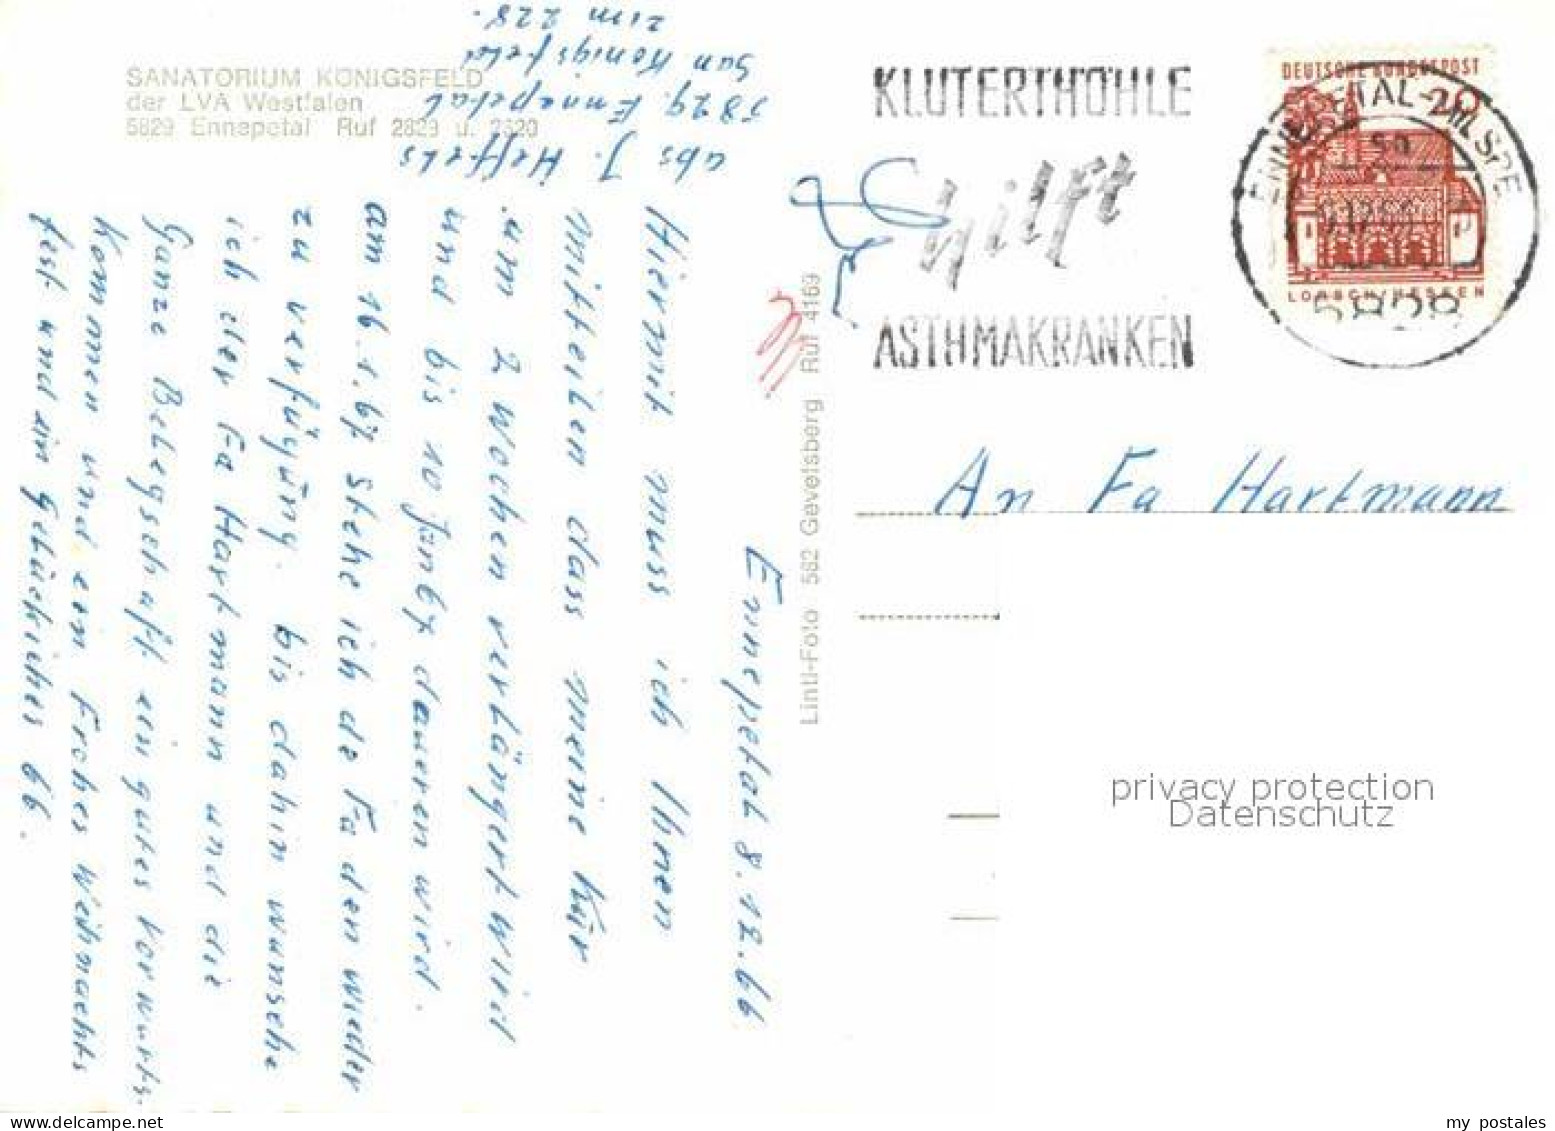 SANATORIUM KÖNIGSFELD
der LVA Westfalen
5829 Ennepetal Ruf 2829 u. 2620
abs J. Heffels
5829. Ennepetal
San Königsfeld
zim 228.
Ennepetal 8.12.66
Hiermit muss ich Ihnen
mitteilen dass meine Kur
um 2 Wochen verlängert wird
und bis 10 Jan 67 dauern wird.
am 16.1.67 stehe ich de Fa dem wieder
zu verfügung. bis dahin wunsche
ich der Fa Hartmann und die
Ganze Belegschaft ein gutes Vorwärts
Kommen und ein Frohes Weihnachts
fest und ein Glückliches 66.
Linti-Foto 582 Gevelsberg Ruf 4169
KLUTERTHÖHLE
hilft
ASTHMAKRANKEN
DEUTSCHE BUNDESPOST
20
LORSCH/HESSEN
ENNEPETAL-MILSPE
5828
An Fa Hartmann
privacy protection
Datenschutz
my postales